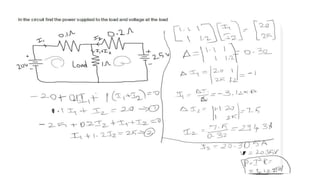 In the circuit find the power supplied to the load and voltage at the load
0.1Ω
0.2Ω
I1
I2
I1+I2
20V
Load
1Ω
25V
-20+0.1I1+1(I1+I2)=0
1.1I1+I2=20→①
-25+0.2I2+I1+I2=0
I1+1.2I2=25→②
[1.1 1
1 1.2] [I1
I2] = [20
25]
Δ = |1.1 1
1 1.2| = 0.32
ΔI1 = |20 1
25 1.2| = -1
I1 = ΔI1/Δ = -3.125A
ΔI2 = |1.1 20
1 25| = 7.5
I2 = 7.5/0.32 = 23.43A